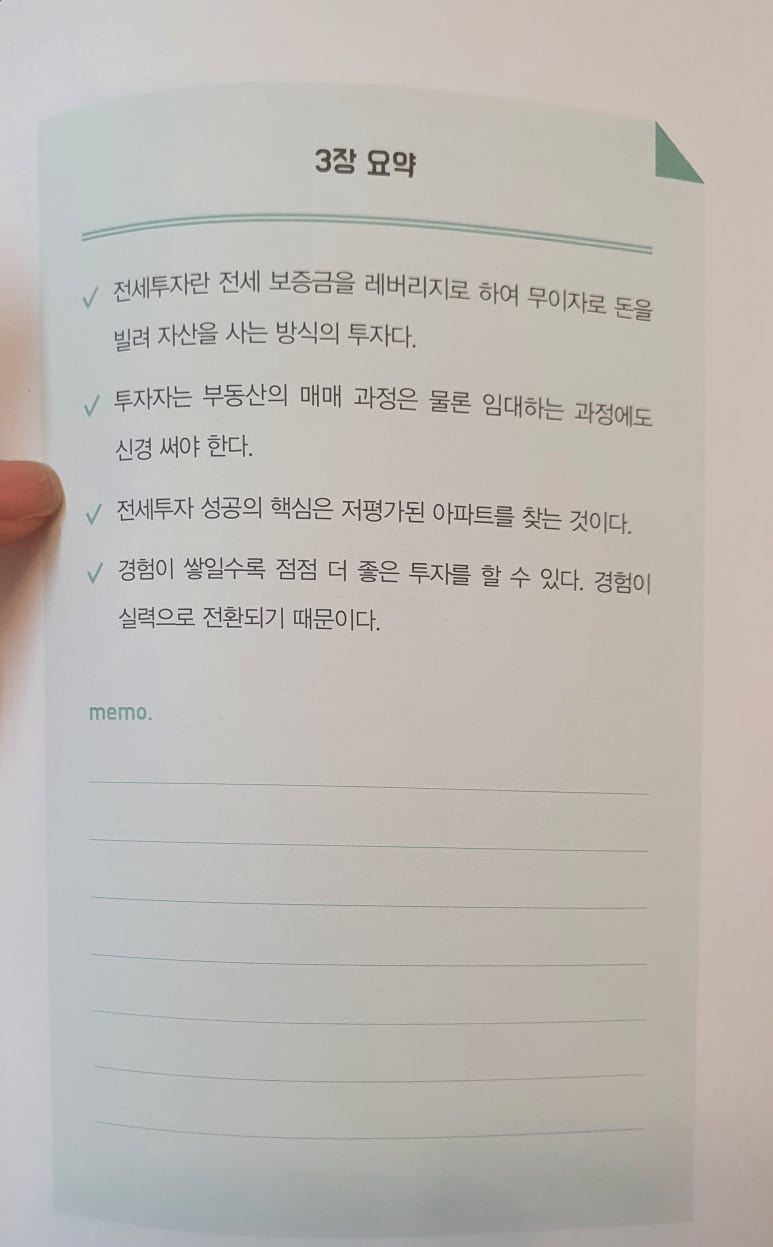 3장 요약
✓ 전세투자란 전세 보증금을 레버리지로 하여 무이자로 돈을
빌려 자산을 사는 방식의 투자다.
✓ 투자자는 부동산의 매매 과정은 물론 임대하는 과정에도
신경 써야 한다.
✓ 전세투자 성공의 핵심은 저평가된 아파트를 찾는 것이다.
✓ 경험이 쌓일수록 점점 더 좋은 투자를 할 수 있다. 경험이
실력으로 전환되기 때문이다.
memo.